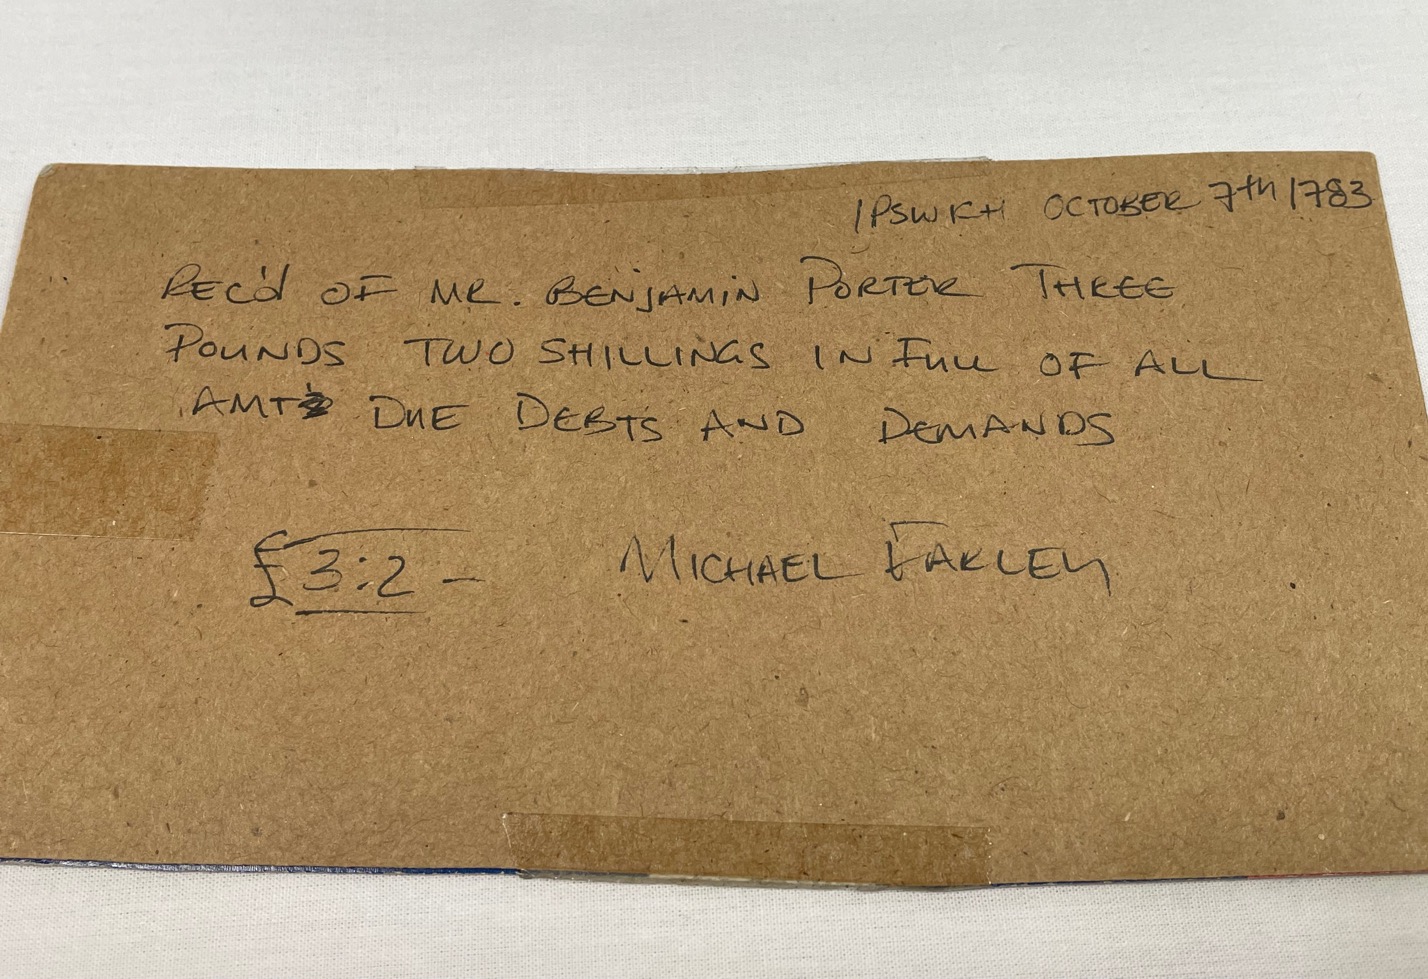 IPSWICH OCTOBER 7th 1783
REC'D OF MR. BENJAMIN PORTER THREE
POUNDS TWO SHILLINGS IN FULL OF ALL
AMTS DUE DEBTS AND DEMANDS
£3:2 – MICHAEL FARLEY